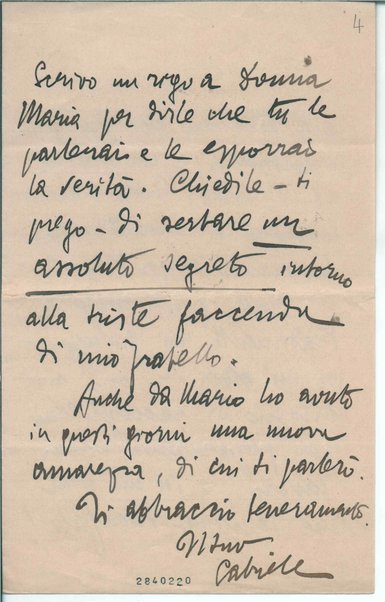 4
Scrivo un rigo a Donna
Maria per dirle che tu le
parlerai e le esporrai
la verità. Chiedile – ti
prego – di serbare un
assoluto segreto intorno
alla triste faccenda
di mio fratello.
Anche da Mario ho avuto
in questi giorni una nuova
amarezza, di cui ti parlerò.
Ti abbraccio teneramente.
Gabriele
2840220